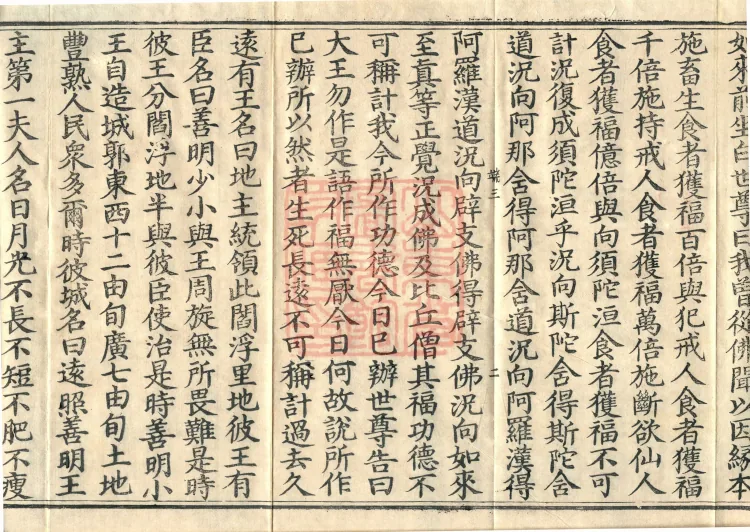 如來前坐白世尊曰我曾從佛聞以因緣本
施畜生食者獲福百倍與犯戒人食者獲福
千倍施持戒人食者獲福萬倍施斷欲仙人
食者獲福億倍與向須陀洹食者獲福不可
計況復成須陀洹乎況向斯陀舍得斯陀舍
道況向阿那舍得阿那舍道況向阿羅漢得
三 二
阿羅漢道況向辟支佛得辟支佛況向如來
至真等正覺況成佛及比丘僧其福功德不
可稱計我今所作功德今日已辦世尊告曰
大王勿作是語作福無厭今日何故說所作
已辦所以然者生死長遠不可稱計過去久
遠有王名曰地主統領此閻浮里地彼王有
臣名曰善明少小與王周旋無所畏難是時
彼王分閻浮地半與彼臣使治是時善明小
王自造城郭東西十二由旬廣七由旬土地
豐熟人民眾多爾時彼城名曰遠照善明王
主第一夫人名日月光不長不短不肥不瘦